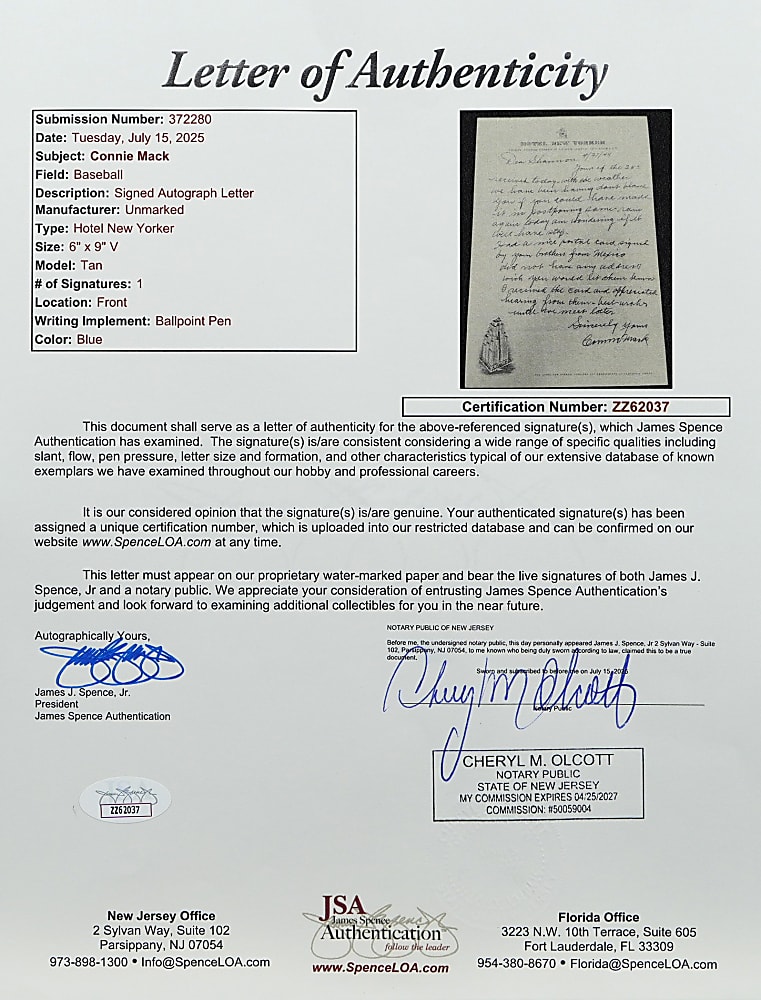 Letter of Authenticity
Submission Number: 372280
Date: Tuesday, July 15, 2025
Subject: Connie Mack
Field: Baseball
Description: Signed Autograph Letter
Manufacturer: Unmarked
Type: Hotel New Yorker
Size: 6" x 9" V
Model: Tan
# of Signatures: 1
Location: Front
Writing Implement: Ballpoint Pen
Color: Blue
HOTEL NEW YORKER
Dear Shannon 4/27/44
Yours of the 25th
received today, with the weather
we have been having dont blame
you if you could have made
it in postponing some, rain
again today am wondering if it
will have stop.
Had a nice postal card signed
by your brothers from Mexico
did not have any address
wish you would let them know
I received the card and appreciated
hearing from them - best wishes
until we meet later
Sincerely yours
Connie Mack
Certification Number: ZZ62037
This document shall serve as a letter of authenticity for the above-referenced signature(s), which James Spence
Authentication has examined. The signature(s) is/are consistent considering a wide range of specific qualities including
slant, flow, pen pressure, letter size and formation, and other characteristics typical of our extensive database of known
exemplars we have examined throughout our hobby and professional careers.
It is our considered opinion that the signature(s) is/are genuine. Your authenticated signature(s) has been
assigned a unique certification number, which is uploaded into our restricted database and can be confirmed on our
website www.SpenceLOA.com at any time.
This letter must appear on our proprietary water-marked paper and bear the live signatures of both James J.
Spence, Jr and a notary public. We appreciate your consideration of entrusting James Spence Authentication's
judgement and look forward to examining additional collectibles for you in the near future.
Autographically Yours,
James J. Spence, Jr.
President
James Spence Authentication
NOTARY PUBLIC OF NEW JERSEY
Before me, the undersigned notary public, this day personally appeared James J. Spence, Jr 2 Sylvan Way - Suite
102, Parsippany, NJ 07054, to me known who being duly sworn according to law, claimed this to be a true
document.
Sworn and subscribed to before me on July 15, 2025
Cheryl M Olcott
Notary Public
CHERYL M. OLCOTT
NOTARY PUBLIC
STATE OF NEW JERSEY
MY COMMISSION EXPIRES 04/25/2027
COMMISSION: #50059004
ZZ62037
New Jersey Office
2 Sylvan Way, Suite 102
Parsippany, NJ 07054
973-898-1300 • Info@SpenceLOA.com
JSA
James Spence
Authentication
follow the leader
www.SpenceLOA.com
Florida Office
3223 N.W. 10th Terrace, Suite 605
Fort Lauderdale, FL 33309
954-380-8670 • Florida@SpenceLOA.com